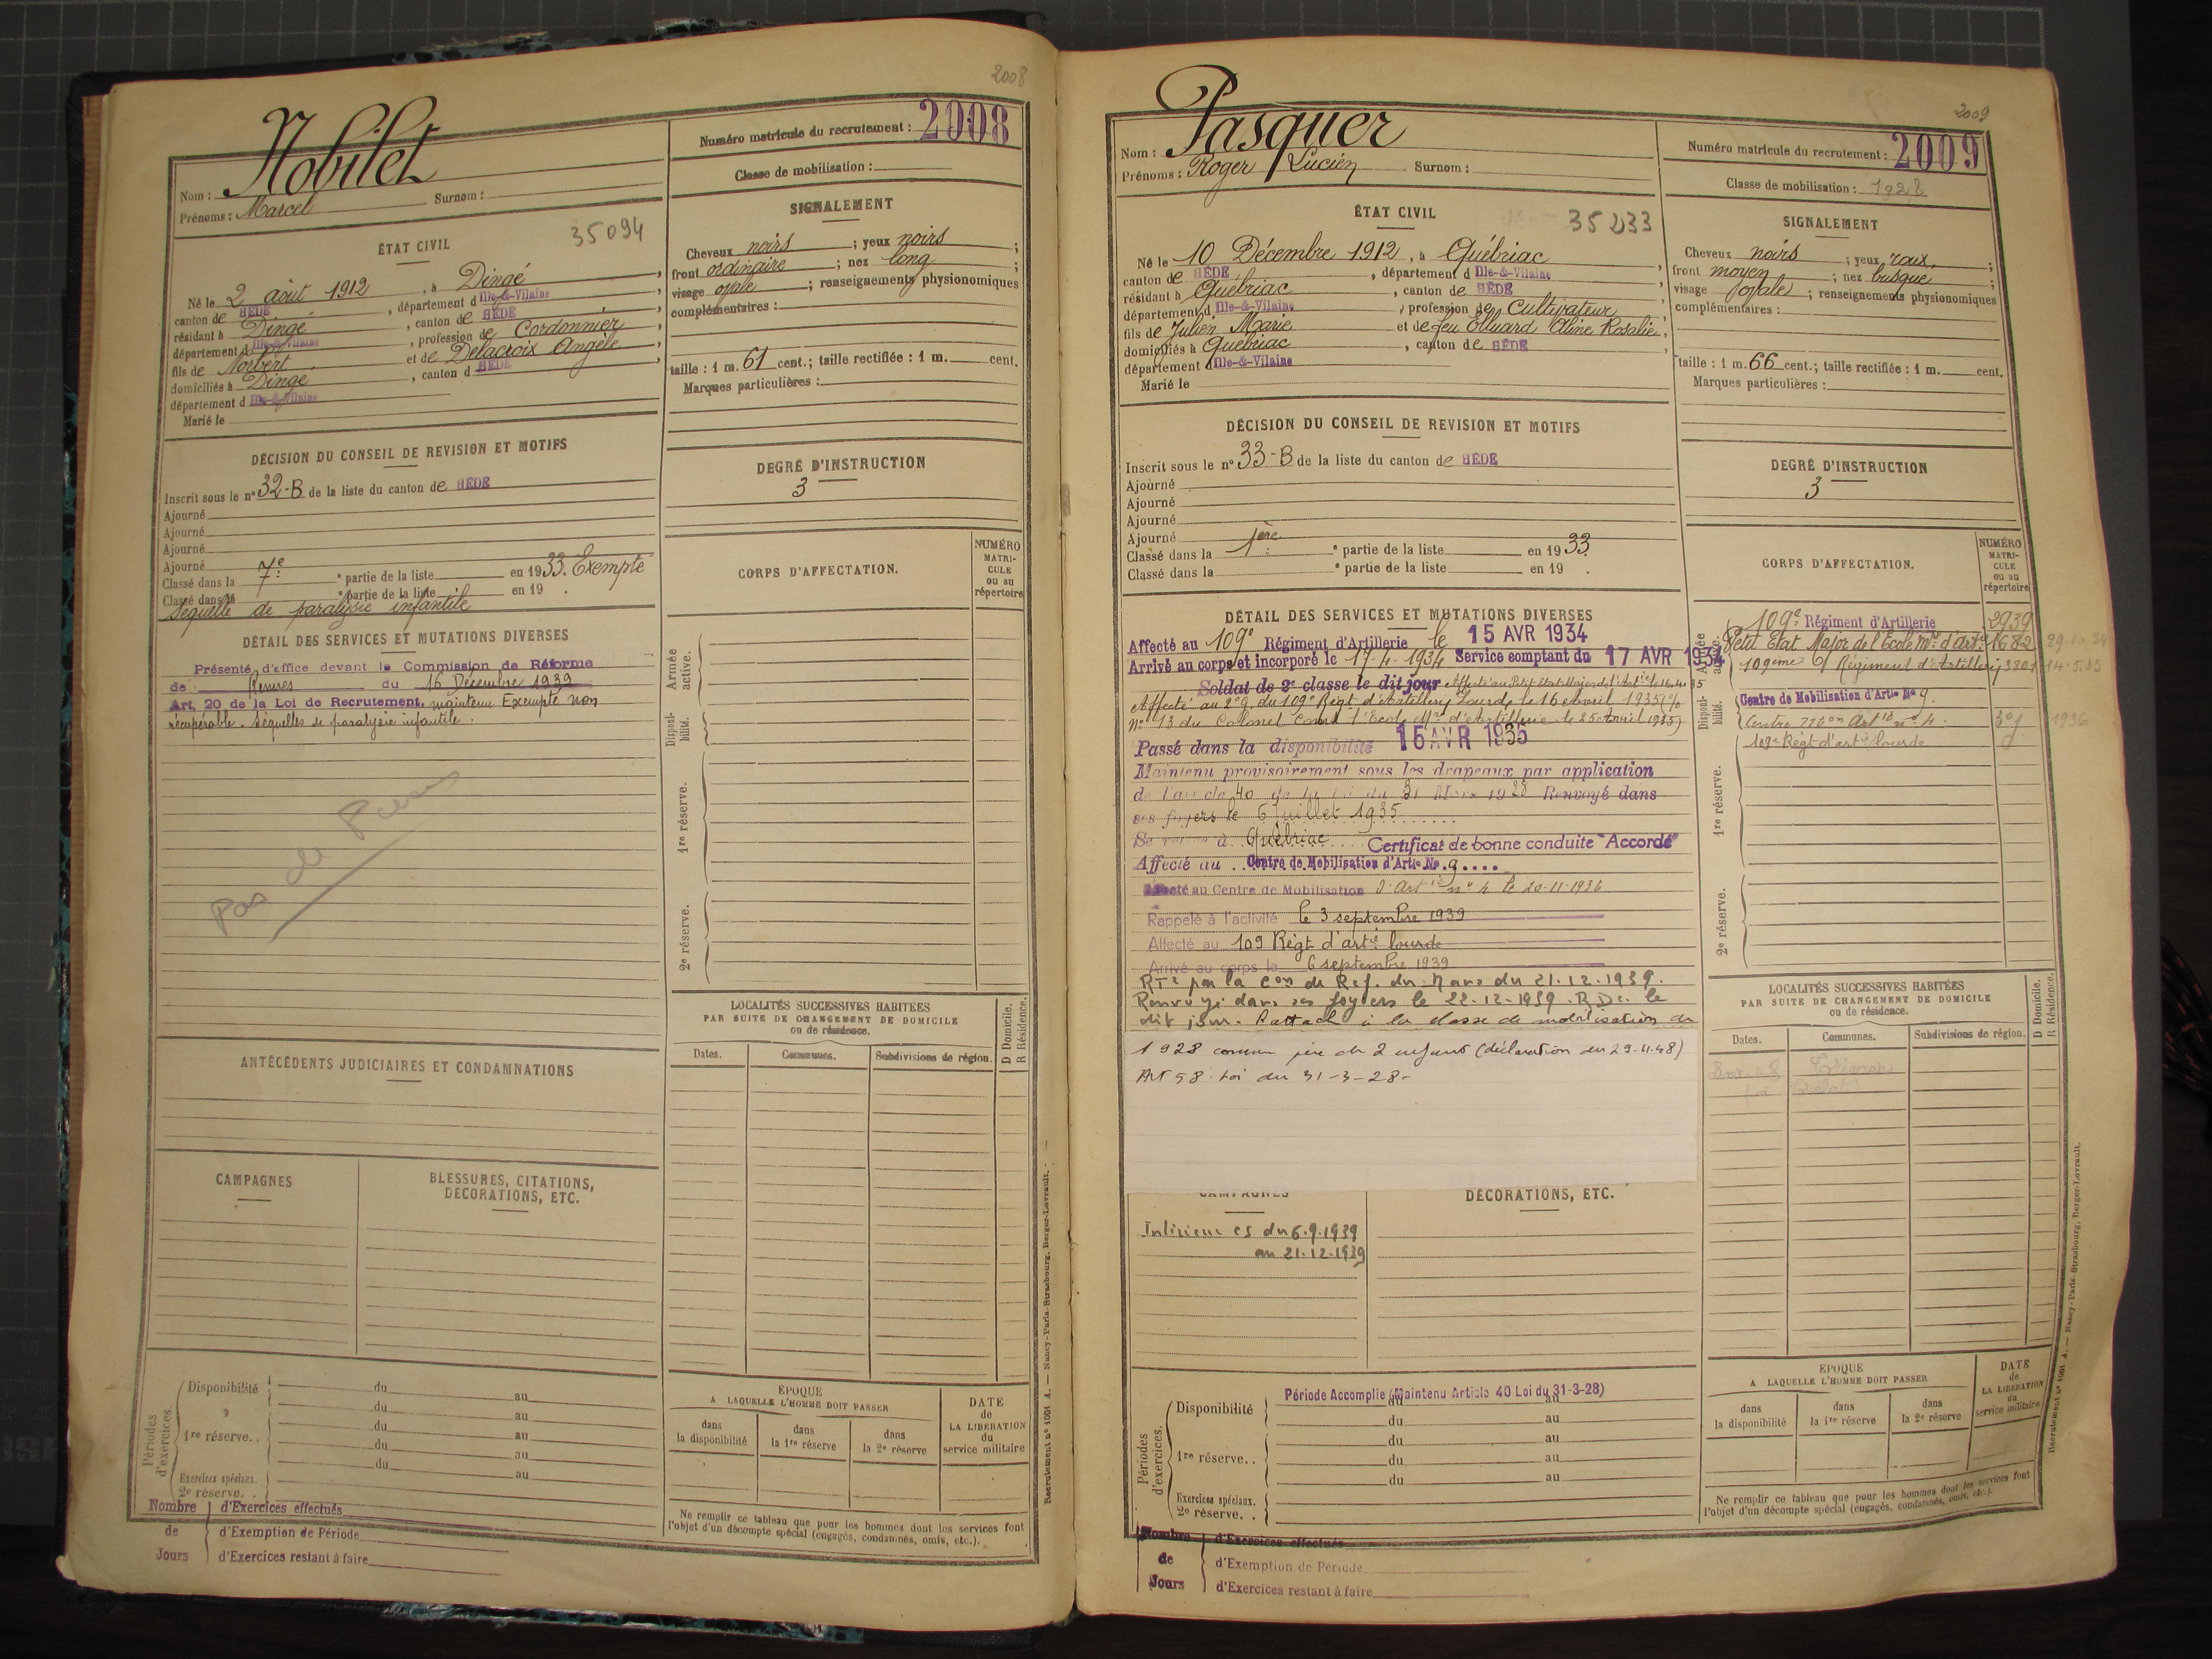 2008
Nom : Nobilet
Prénoms : Marcel Surnom :
Numéro matricule du recrutement : 2008
Classe de mobilisation :
ÉTAT CIVIL
35094
Né le 2 août 1912, à Dingé,
canton de HÉDÉ, département d Ille-&-Vilaine,
résidant à Dingé, canton de HÉDÉ,
département d Ille-&-Vilaine, profession de Cordonnier,
fils de Norbert et de Delacroix Angèle,
domiciliés à Dingé, canton d HÉDÉ,
département d Ille-&-Vilaine
Marié le
SIGNALEMENT
Cheveux noirs ; yeux noirs ;
front ordinaire ; nez long ;
visage ovale ; renseignements physionomiques
complémentaires :
taille : 1 m. 61 cent.; taille rectifiée : 1 m. cent.
Marques particulières :
DÉCISION DU CONSEIL DE REVISION ET MOTIFS
Inscrit sous le n° 32-B de la liste du canton de HÉDÉ
Ajourné
Ajourné
Ajourné
Ajourné
Classé dans la 7e ° partie de la liste en 1933. Exempté
Classé dans la ° partie de la liste en 19 .
Séquelle de paralysie infantile
DEGRÉ D'INSTRUCTION
3
DÉTAIL DES SERVICES ET MUTATIONS DIVERSES
Présenté d'office devant la Commission de Réforme
de Rennes du 16 Décembre 1939
Art. 20 de la Loi de Recrutement, maintenu Exempté non
récupérable. Séquelles de paralysie infantile.
Pas de
CORPS D'AFFECTATION.
NUMÉRO MATRI-CULE ou au répertoire
Armée active.
Disponi-bilité.
1re réserve.
2e réserve.
ANTÉCÉDENTS JUDICIAIRES ET CONDAMNATIONS
LOCALITÉS SUCCESSIVES HABITÉES
PAR SUITE DE CHANGEMENT DE DOMICILE
ou de résidence.
D Domicile.
R Résidence.
Dates. Communes. Subdivisions de région.
CAMPAGNES
BLESSURES, CITATIONS,
DÉCORATIONS, ETC.
Périodes d'exercices.
Disponibilité du au
du au
1re réserve. . du au
du au
du au
Exercices spéciaux.
2e réserve. .
Nombre de Jours
d'Exercices effectués
d'Exemption de Période
d'Exercices restant à faire
ÉPOQUE
A LAQUELLE L'HOMME DOIT PASSER
dans la disponibilité
dans la 1re réserve
dans la 2e réserve
DATE de LA LIBÉRATION du service militaire
Ne remplir ce tableau que pour les hommes dont les services font
l'objet d'un décompte spécial (engagés, condamnés, omis, etc.).
Recrutement n° 1001 A. — Nancy-Paris-Strasbourg, Berger-Levrault. -
2009
Nom : Pasquer
Prénoms : Roger Lucien Surnom :
Numéro matricule du recrutement : 2009
Classe de mobilisation : 1928
ÉTAT CIVIL
Né le 10 Décembre 1912, à Québriac,
canton de HÉDÉ, département d Ille-&-Vilaine,
résidant à Québriac, canton de HÉDÉ,
département d Ille-&-Vilaine, profession de Cultivateur,
fils de Julien Marie et de feu Elluard Aline Rosalie,
domiciliés à Québriac, canton de HÉDÉ,
département d Ille-&-Vilaine
Marié le
SIGNALEMENT
Cheveux noirs ; yeux roux ;
front moyen ; nez busqué ;
visage ovale ; renseignements physionomiques
complémentaires :
taille : 1 m. 66 cent.; taille rectifiée : 1 m. cent.
Marques particulières :
DÉCISION DU CONSEIL DE REVISION ET MOTIFS
Inscrit sous le n° 33-B de la liste du canton de HÉDÉ
Ajourné
Ajourné
Ajourné
Ajourné
Classé dans la 1ère ° partie de la liste en 1933.
Classé dans la ° partie de la liste en 19 .
DEGRÉ D'INSTRUCTION
3
DÉTAIL DES SERVICES ET MUTATIONS DIVERSES
Affecté au 109e Régiment d'Artillerie le 15 AVR 1934
Arrivé au corps et incorporé le 17-4-1934 Service comptant du 17 AVR 1934
Soldat de 2e classe le dit jour
Affecté au 2e g. du 109e Régt d'Artillerie Lourde le 16 Avril 1935
n° 13 du Colonel Comt l'Ecole Mre d'Artillerie le 25 Avril 1935)
Passé dans la disponibilité 15 AVR 1935
Maintenu provisoirement sous les drapeaux par application
de l'article 40 de la loi du 31 Mars 1928 Renvoyé dans
ses foyers le 6 juillet 1935
Se retire à Québriac Certificat de bonne conduite "Accordé"
Affecté au Centre de Mobilisation d'Artie No 9
Affecté au Centre de Mobilisation d'Artie n° 4 le 20-11-1936
Rappelé à l'activité le 3 septembre 1939
Affecté au 109 Régt d'artie lourde
Arrivé au corps le 6 septembre 1939
par la Con de Réf. du Mans du 21.12.1939.
Renvoyé dans ses foyers le 22-12-1939. le
dit jour. Rattaché à la classe de mobilisation de
1928 comme père de 2 enfants (déclaration du 29-11-48)
Art 58 Loi du 31-3-28-
CORPS D'AFFECTATION.
NUMÉRO MATRI-CULE ou au répertoire
Armée active.
109e Régiment d'Artillerie 2939
Petit Etat Major de l'Ecole Mre d'Artie 1682 29-10-34
109ème Régiment d'Artillerie 3801 14-5-35
Disponi-bilité.
Centre de Mobilisation d'Artie No 9
Centre Artie n° 4. 1936
1re réserve.
109e Régt d'artie lourde
2e réserve.
LOCALITÉS SUCCESSIVES HABITÉES
PAR SUITE DE CHANGEMENT DE DOMICILE
ou de résidence.
D Domicile.
R Résidence.
Dates. Communes. Subdivisions de région.
CAMPAGNES
DÉCORATIONS, ETC.
Intérieur cs du 6.9.1939
au 21.12.1939
Périodes d'exercices.
Période Accomplie (Maintenu Article 40 Loi du 31-3-28)
Disponibilité du au
du au
1re réserve. . du au
du au
du au
Exercices spéciaux.
2e réserve. .
Nombre de Jours
d'Exercices effectués
d'Exemption de Période
d'Exercices restant à faire
ÉPOQUE
A LAQUELLE L'HOMME DOIT PASSER
dans la disponibilité
dans la 1re réserve
dans la 2e réserve
DATE de LA LIBÉRATION du service militaire
Ne remplir ce tableau que pour les hommes dont les services font
l'objet d'un décompte spécial (engagés, condamnés, omis, etc.).
Recrutement n° 1001 A. — Nancy-Paris-Strasbourg, Berger-Levrault.